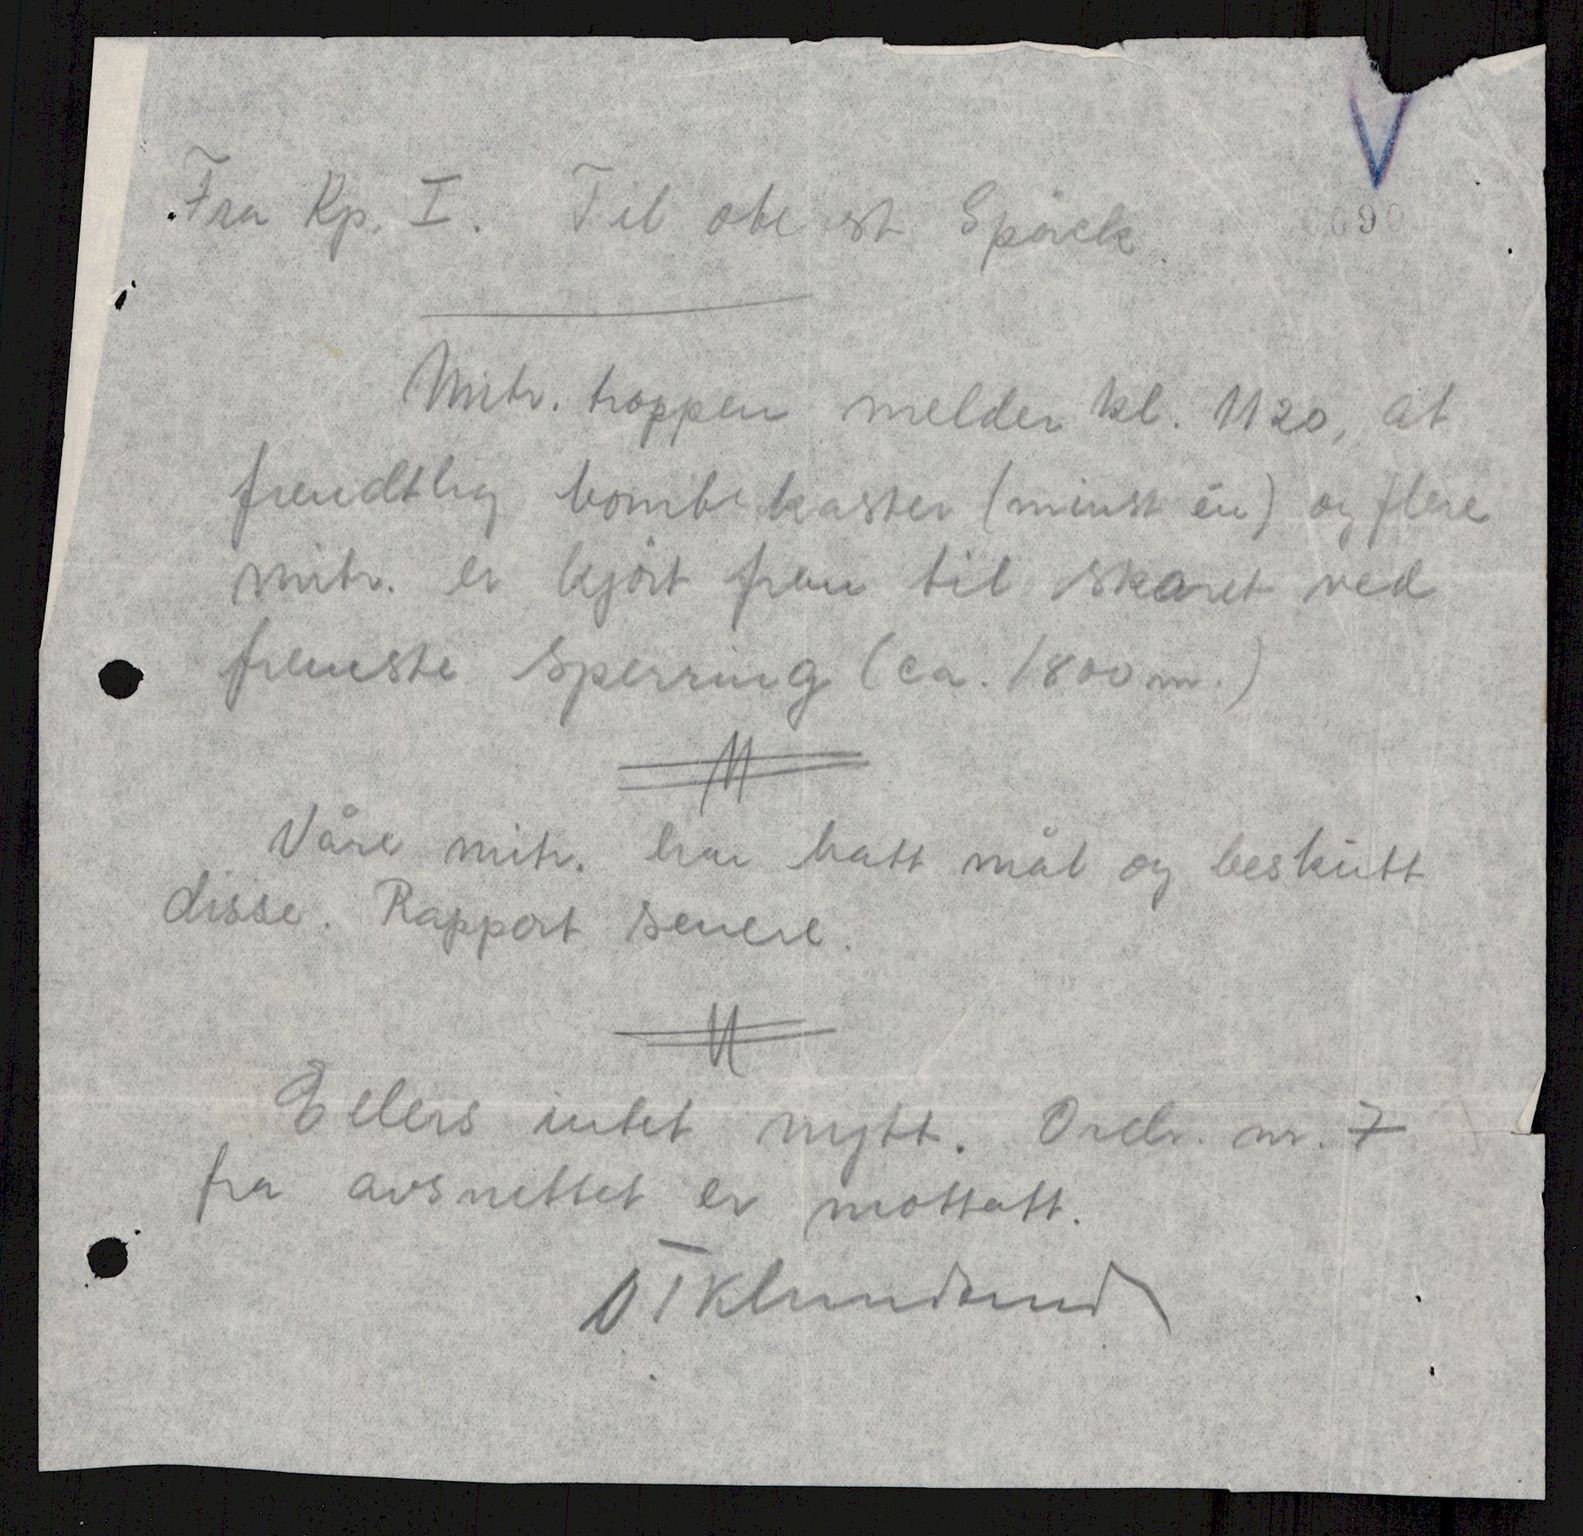 Fra Kp. I. Til oberst Spörck
Mitr. troppen melder kl. 1120, at
fiendtlig bombekaster (minst én) og flere
mitr. er kjört frem til skaret ved
fremste sperring (ca. 1800 m.)
Våre mitr. har hatt mål og beskutt
disse. Rapport senere.
Ellers intet nytt. Ordr. nr. 7
fra avsnittet er mottatt.